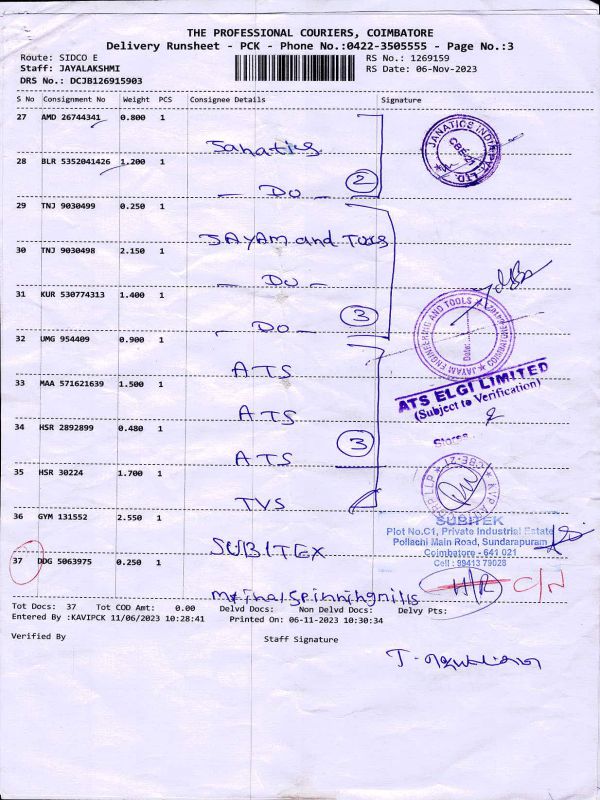 THE PROFESSIONAL COURIERS, COIMBATORE
Delivery Runsheet - PCK - Phone No.:0422-3505555 - Page No.:3
Route: SIDCO E
RS No.: 1269159
Staff: JAYALAKSHMI
RS Date: 06-Nov-2023
DRS No.: DCJB126915903
S No Consignment No Weight PCS Consignee Details Signature
27 AMD 26744341 0.800 1
Janatics
JANATICS INDIA PVT. LTD. CBE-21
28 BLR 5352041426 1.200 1
- Do - 2
29 TNJ 9030499 0.250 1
JAYAM and Tools
30 TNJ 9030498 2.150 1
- Do -
31 KUR 530774313 1.400 1
- Do - 3
JAYAM ENGINEERING AND TOOLS
Date:
32 UMG 954409 0.900 1
ATS
ATS ELGI LIMITED
(Subject to Verification)
33 MAA 571621639 1.500 1
ATS
34 HSR 2892899 0.480 1
ATS 3
Stores
35 HSR 30224 1.700 1
TVS
CBE-21
36 GYM 131552 2.550 1
SUBITEX
SUBITEK
Plot No.C1, Private Industrial Estate
Pollachi Main Road, Sundarapuram
Coimbatore - 641 021
Cell : 99413 79028
37 DDG 5063975 0.250 1
H/R C/N
Tot Docs: 37 Tot COD Amt: 0.00 Delvd Docs: Non Delvd Docs: Delvy Pts:
Entered By :KAVIPCK 11/06/2023 10:28:41 Printed On: 06-11-2023 10:30:34
Verified By Staff Signature